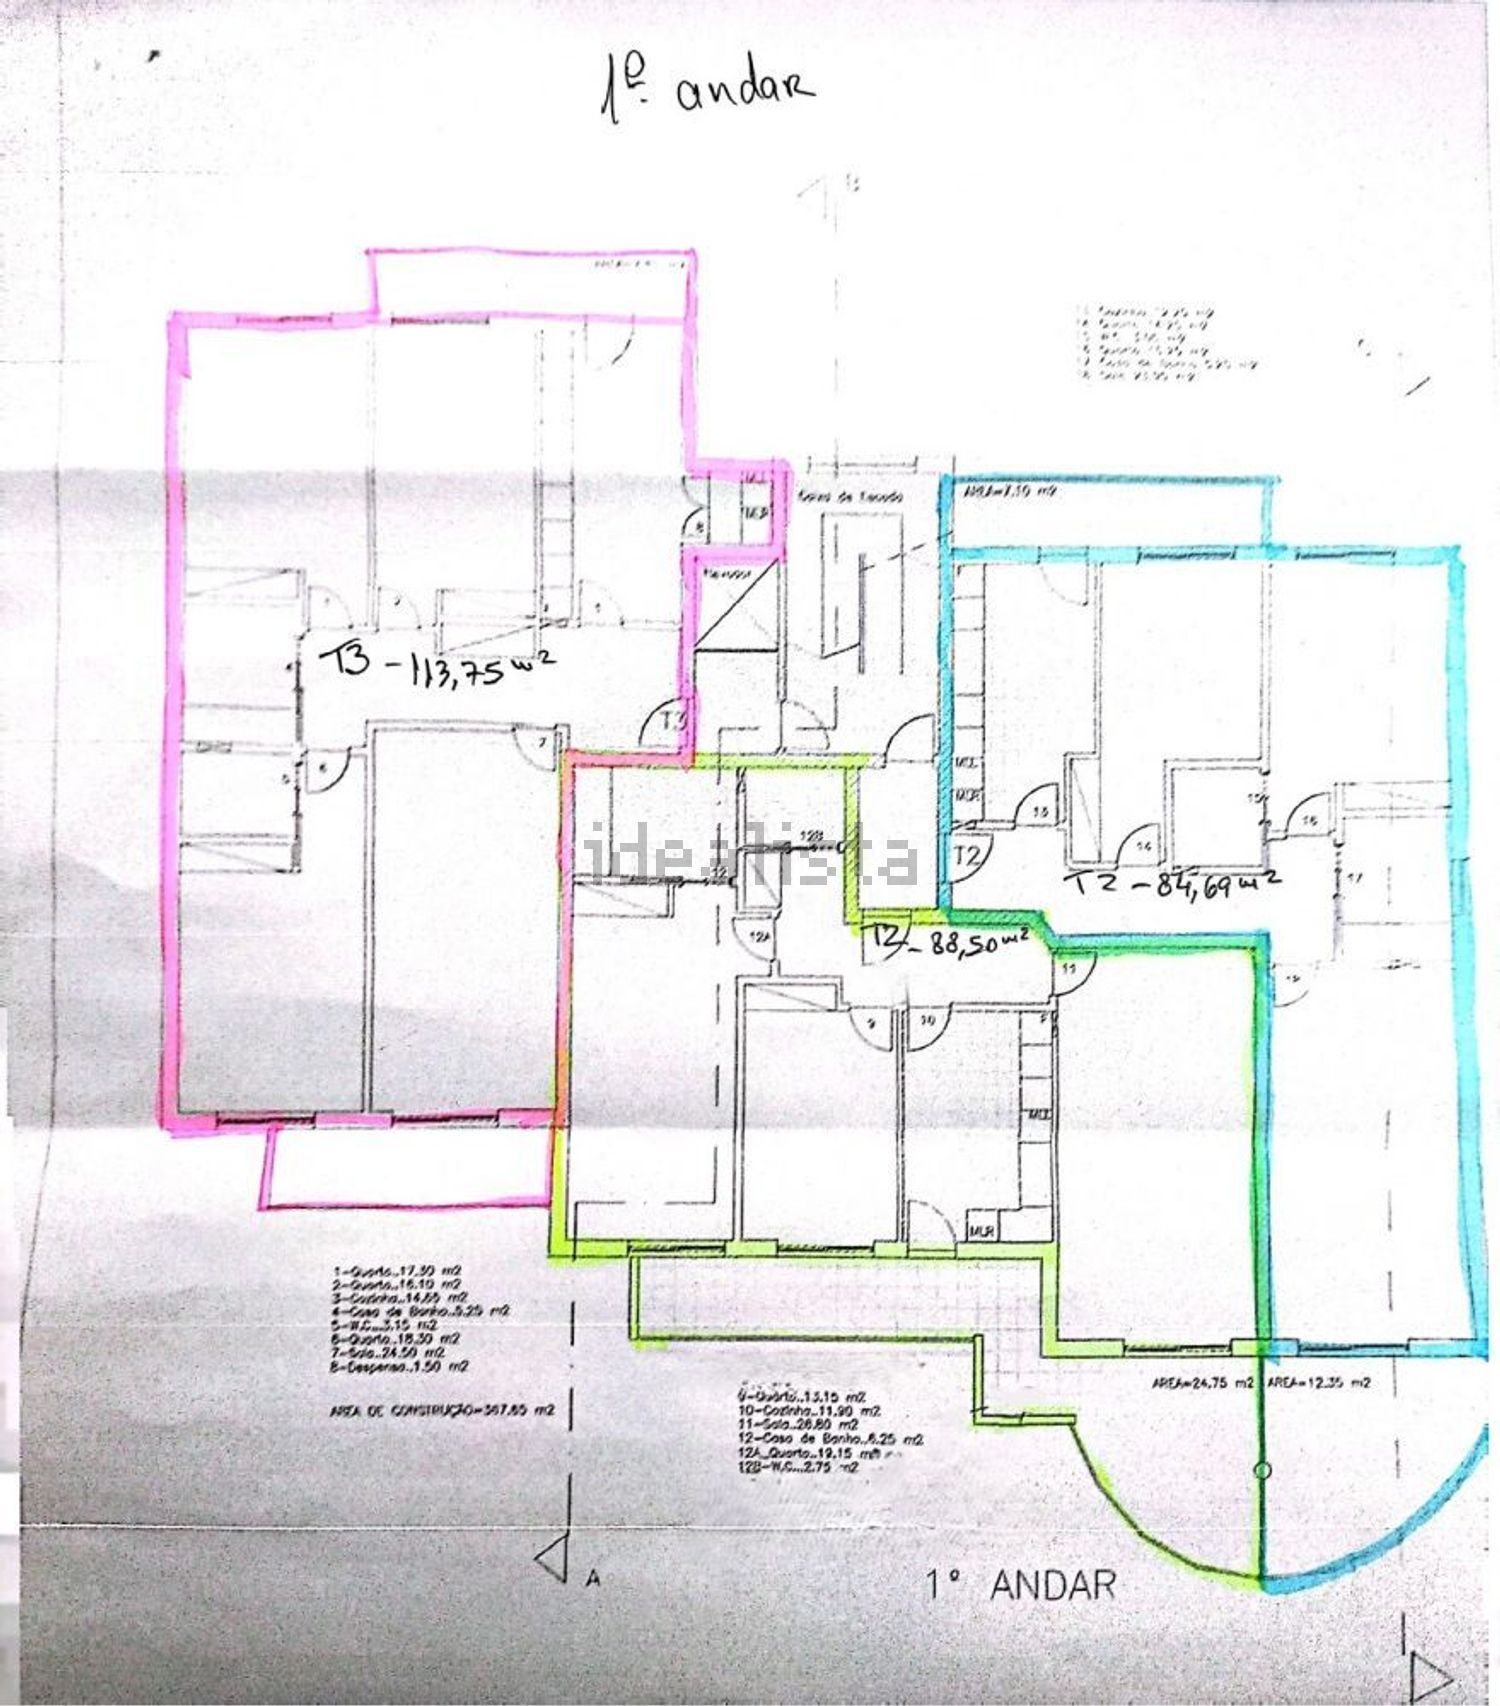 1º andar
B
m2
Quarto
Caixa de Escada
AREA=7.10 m2
MLL
MLR
8
Elevador
1
2
3
4
T3 - 113,75 m2
T3
7
5
6
MLL
MLR
13
12B
T2
14
15
16
17
T2 - 84,69 m2
idealista
12
12A
T2 - 88,50 m2
11
9
10
MLL
MLR
1-Quarto..17.30 m2
2-Quarto..16.10 m2
3-Cozinha..14.65 m2
4-Casa de Banho..5.25 m2
5-W.C...3.15 m2
6-Quarto..18.30 m2
7-Sala..24.50 m2
8-Despensa..1.50 m2
AREA DE CONSTRUÇÃO=367.65 m2
AREA=24.75 m2
AREA=12.35 m2
9-Quarto..13.15 m2
10-Cozinha..11.90 m2
11-Sala..26.80 m2
12-Casa de Banho..6.25 m2
12A_Quarto..19.15 m2
12B-W.C...2.75 m2
A
1º ANDAR